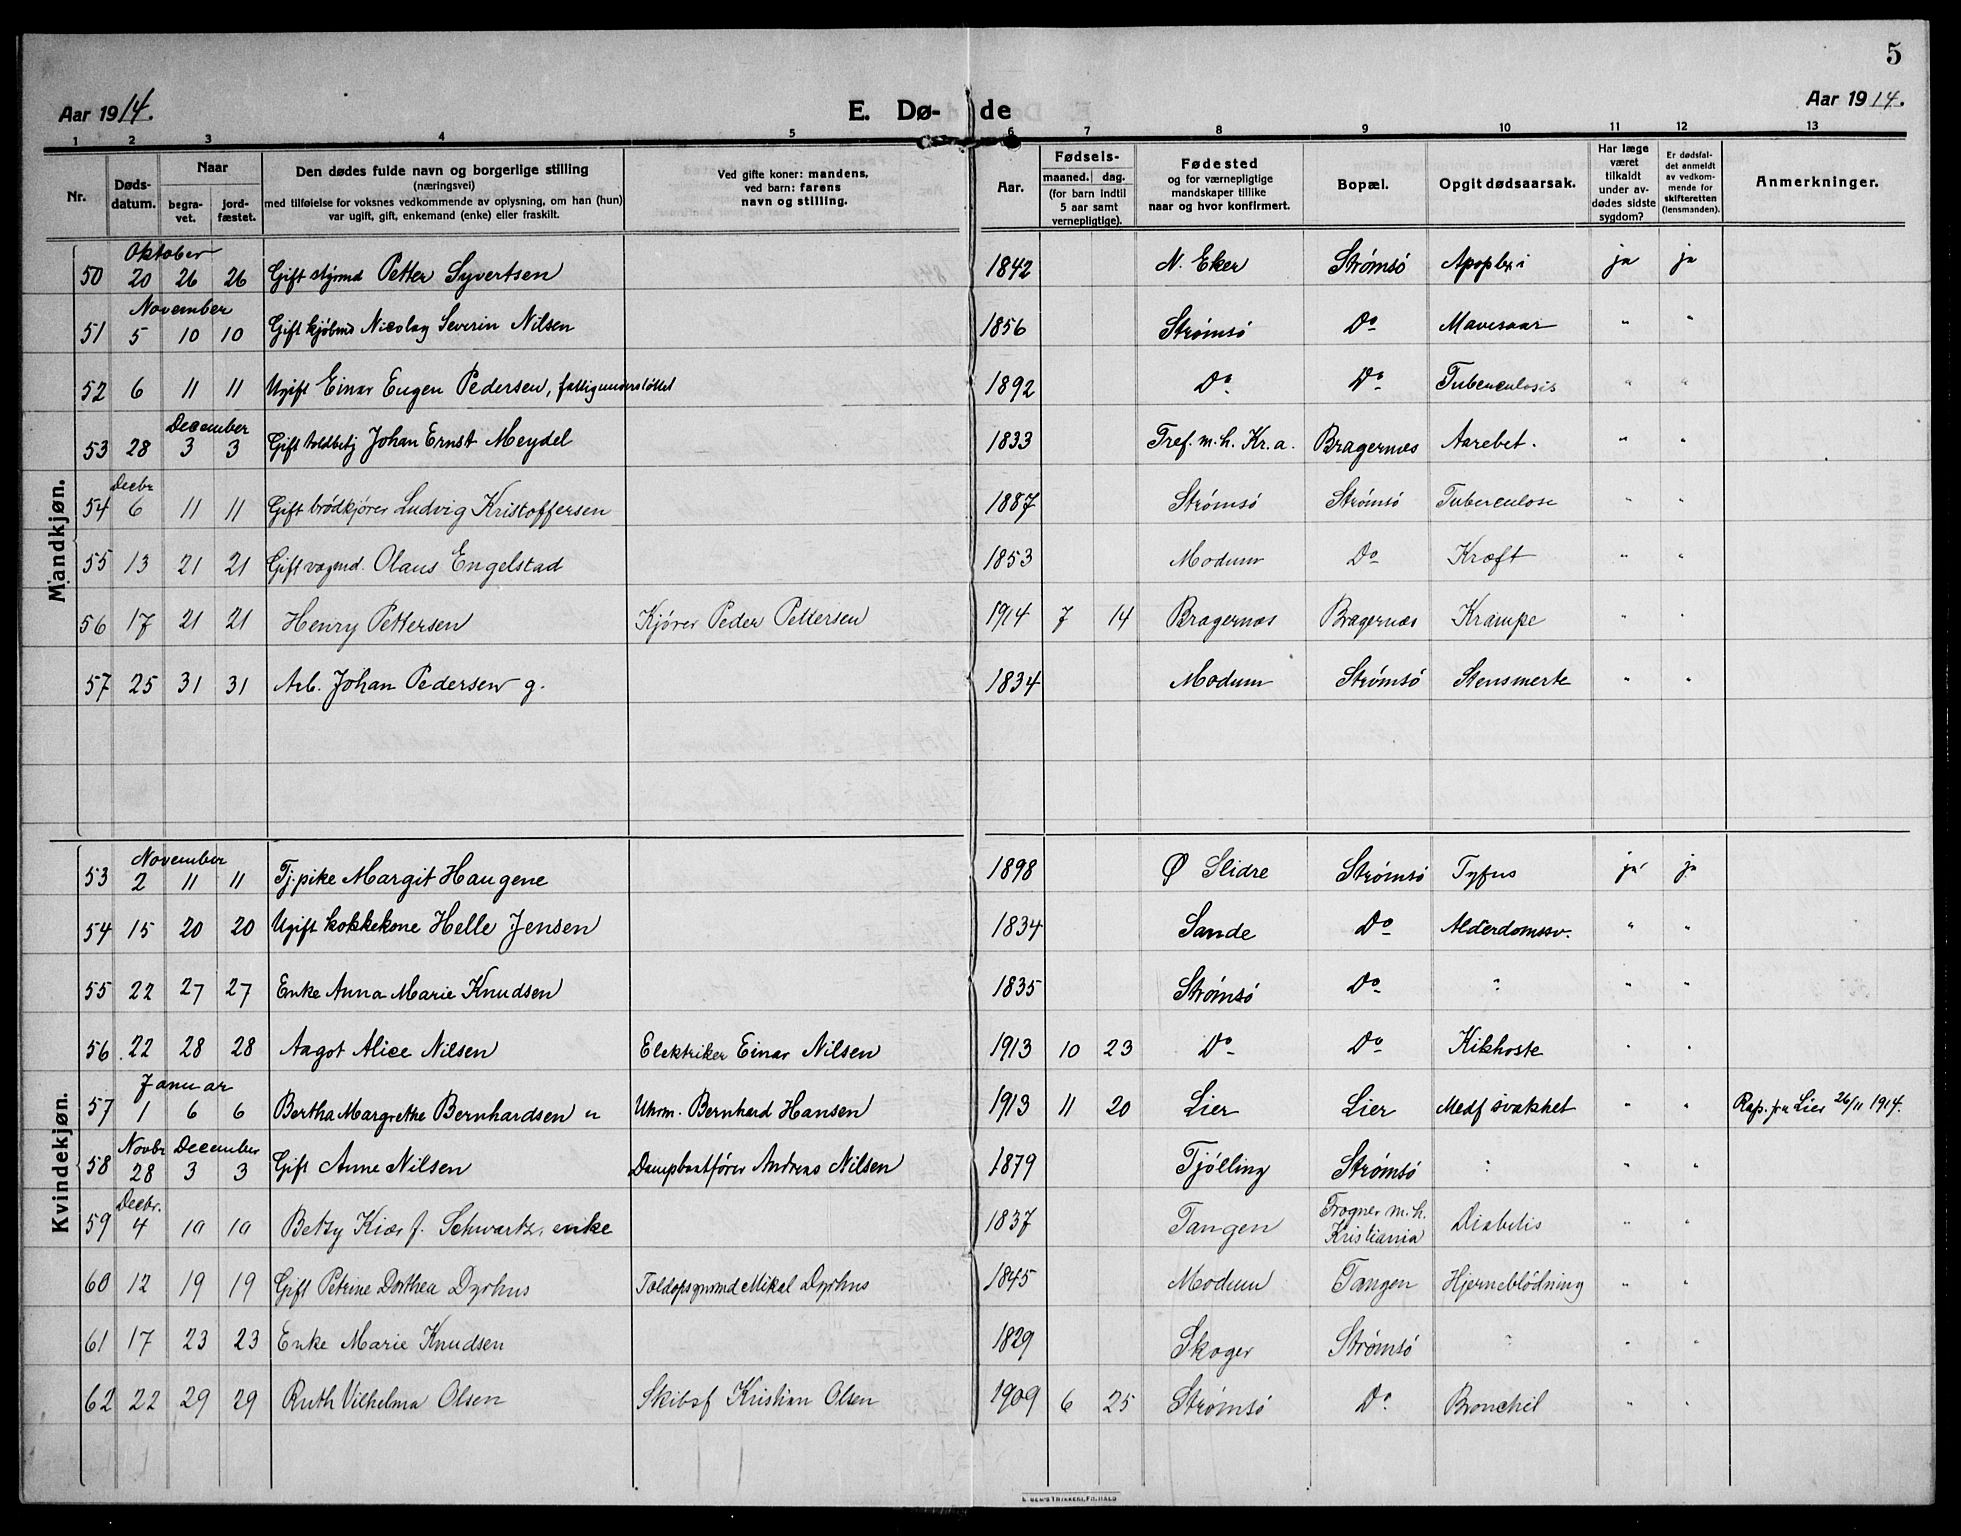 5
Aar 1914. E. Dø- de Aar 1914.
1 2 3 4 5 6 7 8 9 10 11 12 13
Nr. Døds-datum. Naar begra-vet. jord-fæstet. Den dødes fulde navn og borgerlige stilling (næringsvei) med tilføielse for voksnes vedkommende av oplysning, om han (hun) var ugift, gift, enkemand (enke) eller fraskilt. Ved gifte koner: mandens, ved barn: farens navn og stilling. Aar. Fødsels- maaned. dag. (for barn indtil 5 aar samt vernepligtige). Fødested og for værnepligtige mandskaper tillike naar og hvor konfirmert. Bopæl. Opgit dødsaarsak. Har læge været tilkaldt under av-dødes sidste sygdom? Er dødsfal-det anmeldt av vedkom-mende for skifteretten (lensmanden). Anmerkninger.
Mandkjøn.
Oktober
50 20 26 26 Gift styrmd Petter Syvertsen 1842 N. Eker Strømsø Apoplexi ja ja
November
51 5 10 10 Gift kjøbmd Nicolay Severin Nilsen 1856 Strømsø Do Mavesaar " "
52 6 11 11 Ugift Einar Eugen Pedersen, fattigunderstøttet 1892 Do Do Tuberculosis " "
December
53 28 3 3 Gift toldbetj Johan Ernst Meydel 1833 Tref. m.h. Kr.a. Bragernes Aarebet. " "
Decbr
54 6 11 11 Gift brødkjører Ludvig Kristoffersen 1887 Strømsø Strømsø Tuberculose " "
55 13 21 21 Gift vognmd. Olaus Engelstad 1853 Modum Do Kræft " "
56 17 21 21 Henry Pettersen Kjører Peder Pettersen 1914 7 14 Bragernæs Bragernæs Krampe " "
57 25 31 31 Arb. Johan Pedersen g. 1834 Modum Strømsø Stensmerte " "
Kvindekjøn.
November
53 2 11 11 Tj.pike Margit Haugene 1898 Ø Slidre Strømsø Tyfus ja ja
54 15 20 20 Ugift kokkekone Helle Jensen 1834 Sande Do Alderdomssv. " "
55 22 27 27 Enke Anna Marie Knudsen 1835 Strømsø Do " " "
56 22 28 28 Aagot Alice Nilsen Elektriker Einar Nilsen 1913 10 23 Do Do Kikhoste " "
Januar
57 1 6 6 Bertha Margrethe Bernhardsen u Uhrm. Bernhard Hansen 1913 11 20 Lier Lier Medf svakhet " " Rap. fra Lier 26/11 1914.
Novbr December
58 28 3 3 Gift Anne Nilsen Dampbaatfører Andreas Nilsen 1879 Tjølling Strømsø " " "
Decbr.
59 4 10 10 Betzy Kiær f. Schwartz, enke 1837 Tangen Frogner m.h. Kristiania Diabetis " "
60 12 19 19 Gift Petrine Dorthea Dyrhus Toldopsynsmd Mikal Dyrhus 1845 Modum Tangen Hjerneblødning " "
61 17 23 23 Enke Marie Knudsen 1829 Skoger Strømsø " " "
62 22 29 29 Ruth Vilhelma Olsen Skibsf Kristian Olsen 1909 6 25 Strømsø Do Bronchit " "